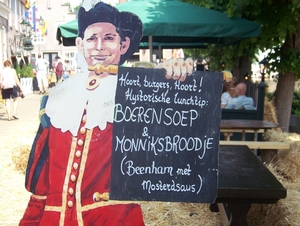 Hoort, burgers, Hoort!
Hystorische lunchtip:
BOERENSOEP
&
MONNIKSBROODJE
(Beenham met
Mosterdsaus)